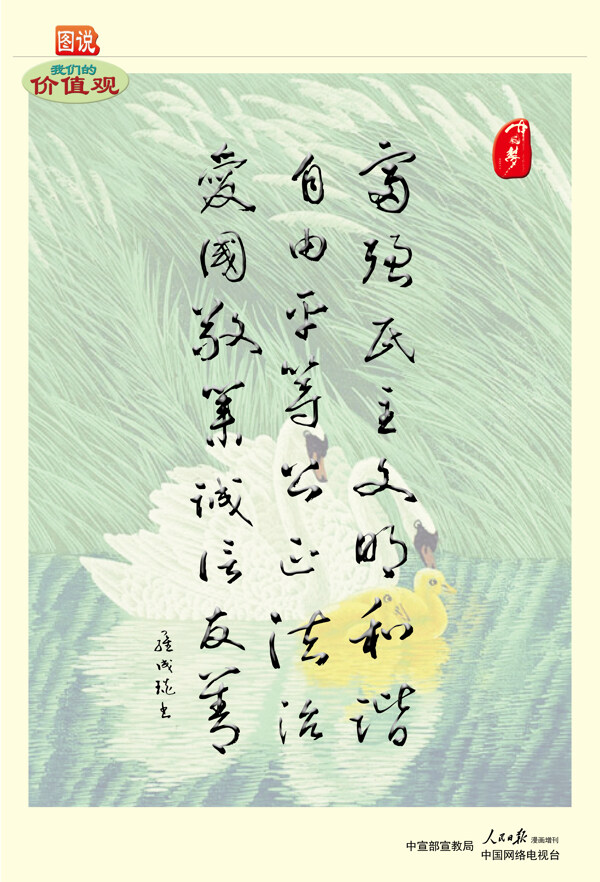 图说
我们的
价值观
中国梦
富强民主文明和谐
自由平等公正法治
愛國敬業诚信友善
中宣部宣教局
人民日报 漫画增刊
中国网络电视台